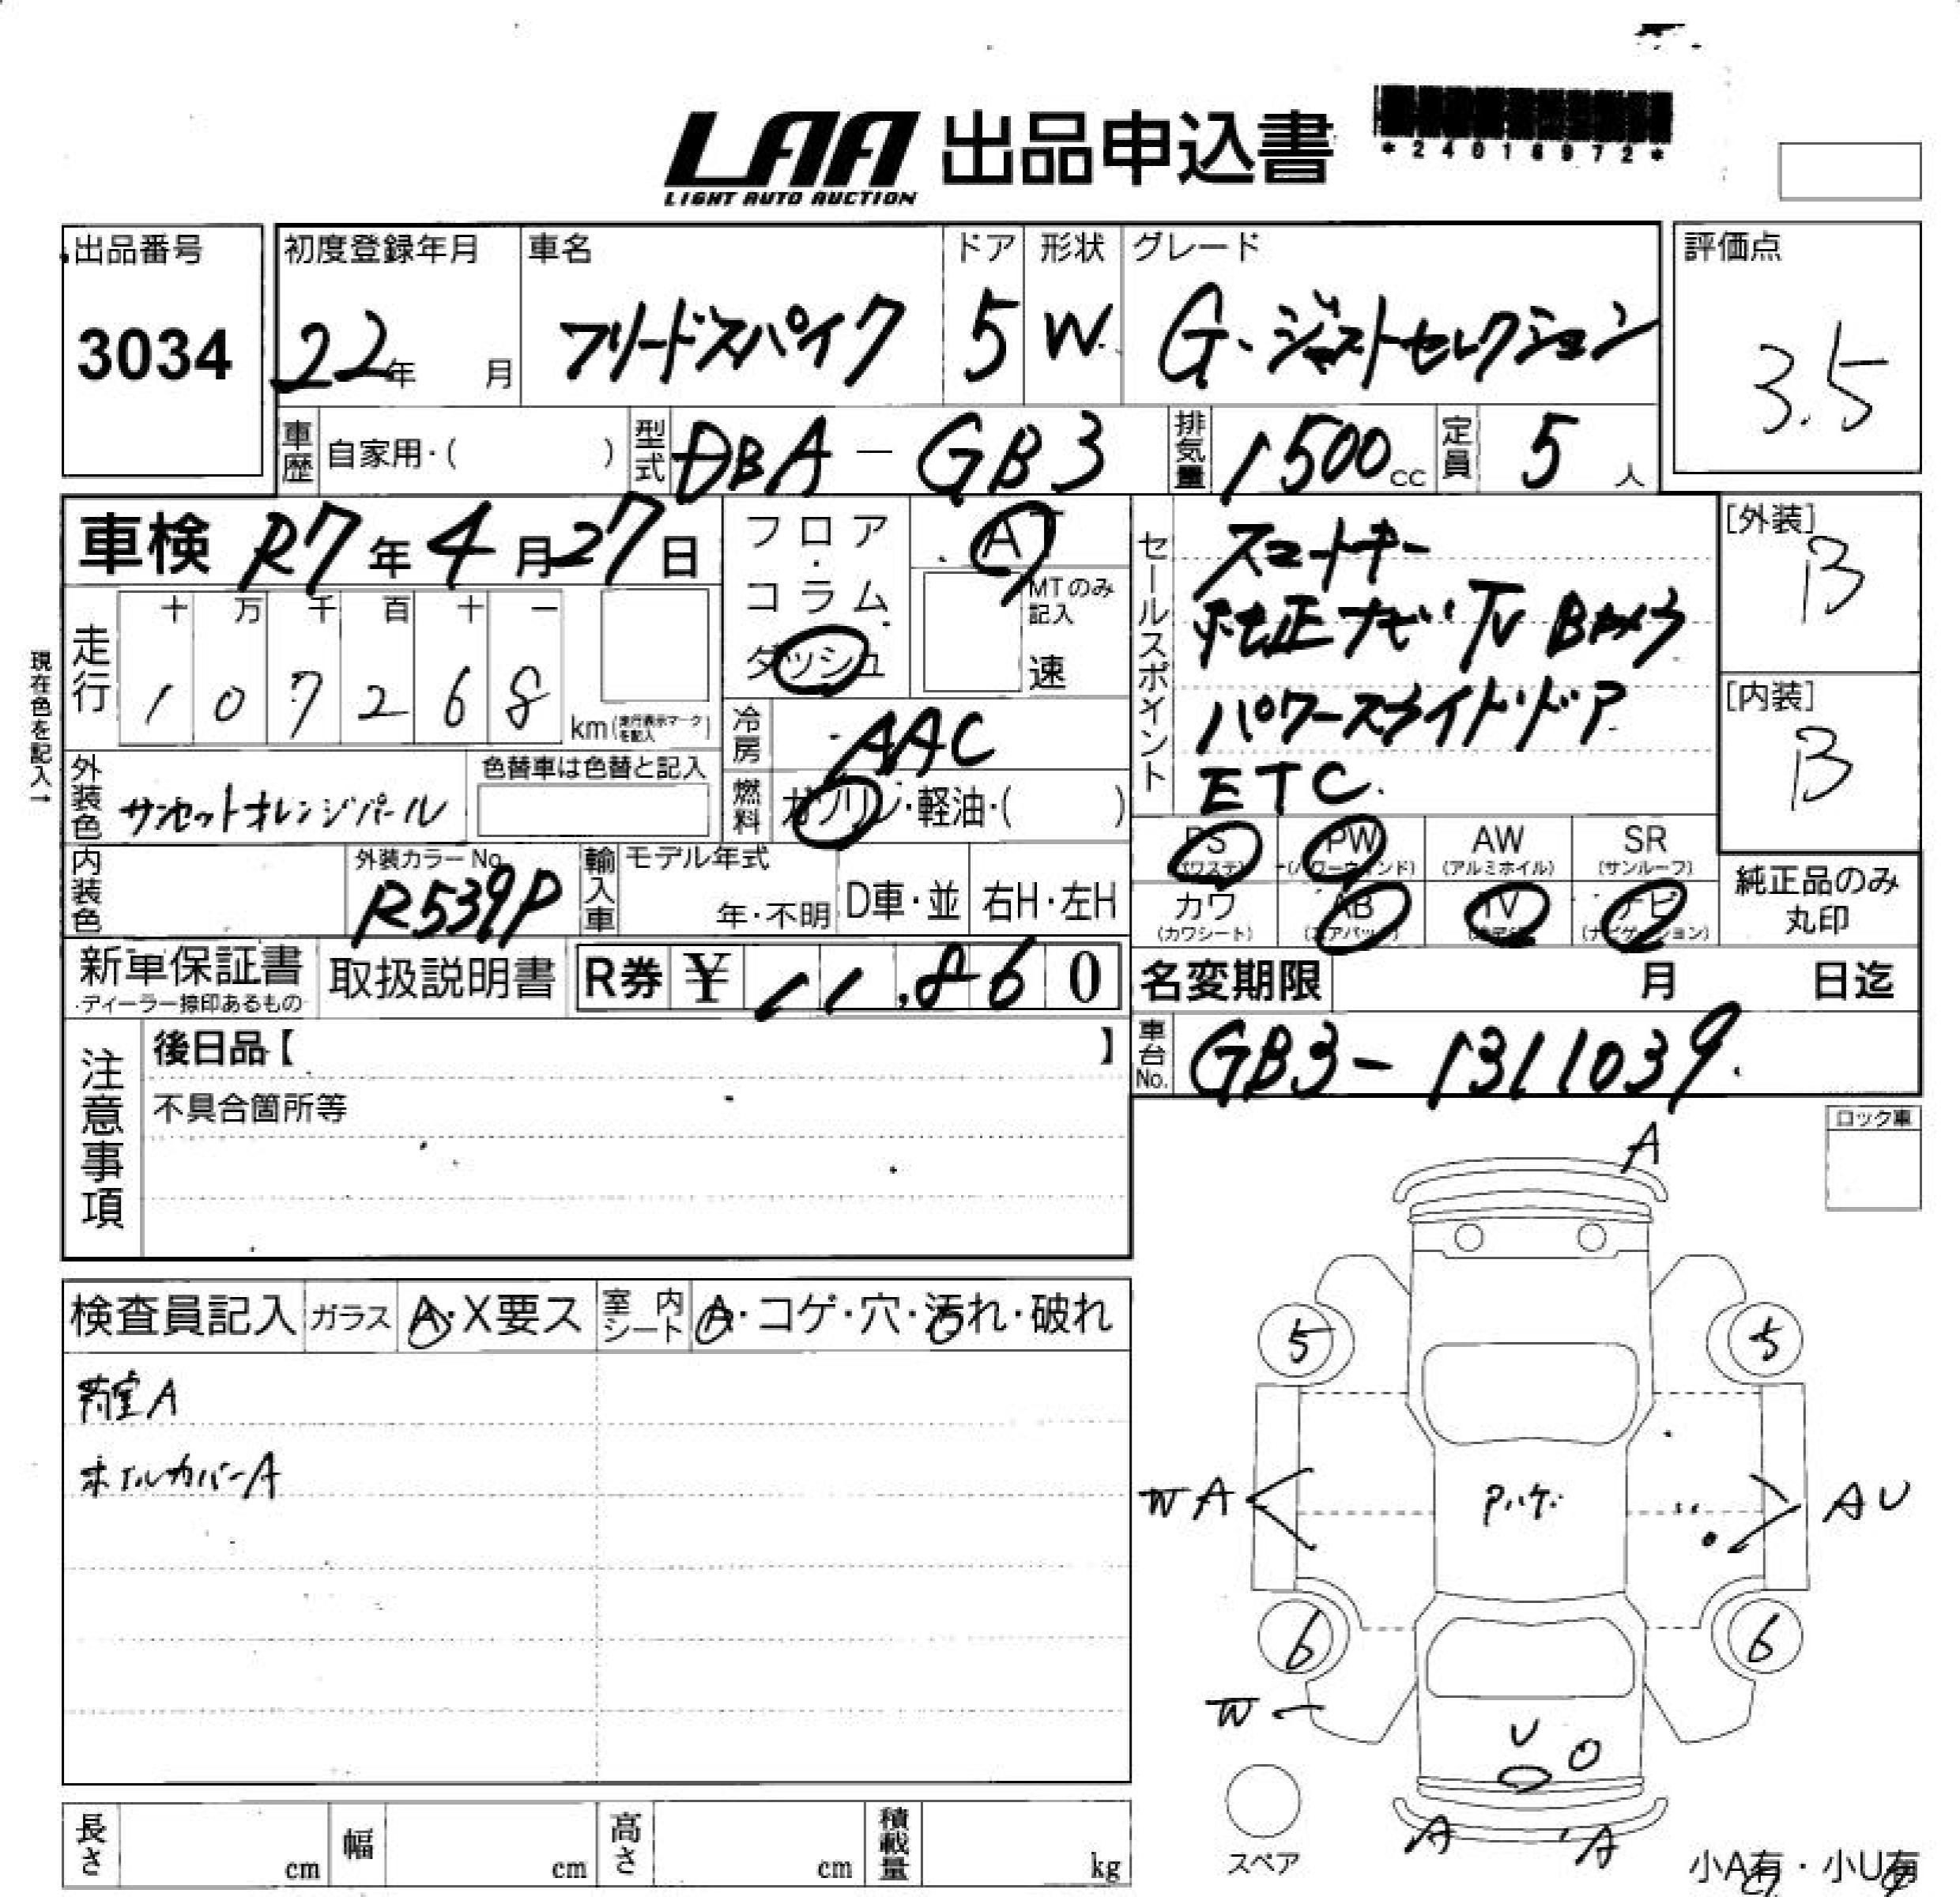 LAA 出品申込書
LIGHT AUTO AUCTION
*24016972*
出品番号
3034
初度登録年月 車名 ドア 形状 グレード
22年 月 フリードスパイク 5 W G・ジャストセレクション
評価点
3.5
車歴 自家用・( ) 型式 DBA-GB3 排気量 1500cc 定員 5人
車検 R7年4月27日
フロア・コラム ダッシュ
AT
MTのみ記入
速
セールスポイント
スマートキー
純正ナビTV Bカメラ
パワースライドドア
ETC.
[外装]
B
[内装]
B
現在色を記入→
走行
十 万 千 百 十 一
1 0 7 2 6 8
km(走行表示マークを記入)
冷房 AAC
外装色 サンセットオレンジパール
色替車は色替と記入
燃料 ガソリン・軽油・( )
PS (パワステ) PW (パワーウィンド) AW (アルミホイル) SR (サンルーフ)
カワ (カワシート) AB (エアバック) TV ナビ (ナビゲーション)
純正品のみ丸印
内装色
外装カラーNo.
R539P
輸入車 モデル年式
年・不明 D車・並 右H・左H
新車保証書
ディーラー捺印あるもの
取扱説明書
R券 ¥ 11,860
名変期限 月 日迄
注意事項
後日品【 】
不具合箇所等
車台No. GB3-1311039.
ロック車
検査員記入 ガラス A・X要ス 室内シート A・コゲ・穴・汚れ・破れ
荷室A
ホイルカバーA
A
5 5
W A Pハゲ A U
6 6
W
U
A A
スペア
小A有・小U有
長さ cm 幅 cm 高さ cm 積載量 kg